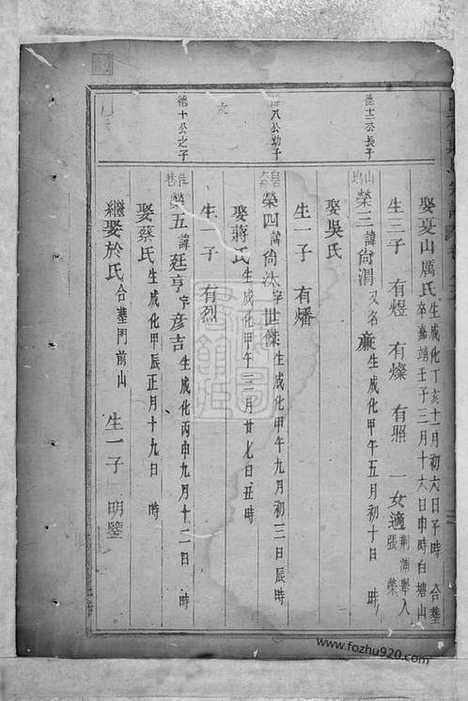 娶夏山厲氏生成化丁亥十一月初六日子時 合墓
卒嘉靖壬子三月十六日申時白塘山
生三子 有煜 有燦 有照 一女適荆浦舉入張榮
德十二公長子
榮三諱尙渭又名廉生成化甲午五月初十日 時
娶吳氏
生一子 有燔
八公幼子
榮四諱尙汰字世傑生成化甲午九月初三日辰時
娶蔣氏生成化甲午三月廿七日丑時
生一子 有烈
德十公之子
榮五諱廷亨字彦吉生成化丙申九月十二日 時
娶蔡氏生成化甲辰正月十九日 時
繼娶於氏合墓門前山 生一子 明鑒
www.fozhu920.com